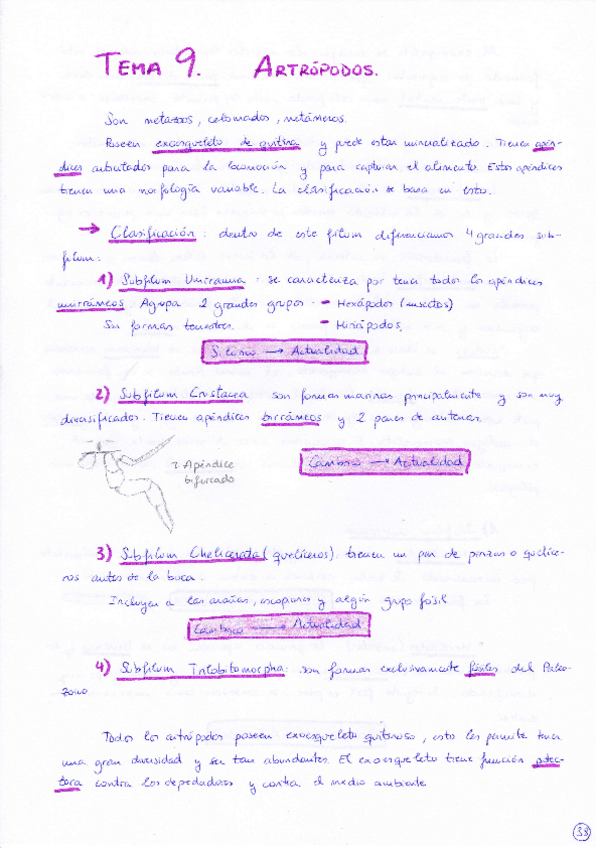 TEMA 9. ARTRÓPODOS.
Son metazoos, celomados, metámeros.
Poseen exoesqueleto de quitina y puede estar mineralizado. Tienen apén-
dices articulados para la locomoción y para capturar el alimento. Estos apéndices
tienen una morfología variable. La clasificación se basa en esto.
→ Clasificación: dentro de este filum diferenciamos 4 grandes sub-
filum:
1) Subfilum Unirrama - se caracteriza por tener todos los apéndices
unirrámeos Agrupa 2 grandes grupos - Hexápodos (insectos)
Son formas terrestres. - Miriápodos.
Silúrico → Actualidad
2) Subfilum Crustacea son formas marinas principalmente y son muy
diversificados. Tienen apéndices birrámeos y 2 pares de antenas.
Apéndice
bifurcado
Cámbrico → Actualidad
3) Subfilum Chelicerata (quelíceros). tienen un par de pinzas o quelíce-
ros antes de la boca.
Incluyen a las arañas, escorpiones y algún grupo fósil
Cámbrico → Actualidad
4) Subfilum Trilobitomorpha: son formas exclusivamente fósiles del Paleo-
zoico
Todos los artrópodos poseen exoesqueleto quitinoso, esto les permite tener
una gran diversidad y ser tan abundantes. El exoesqueleto tiene función protec-
tora contra los depredadores y contra el medio ambiente.
33